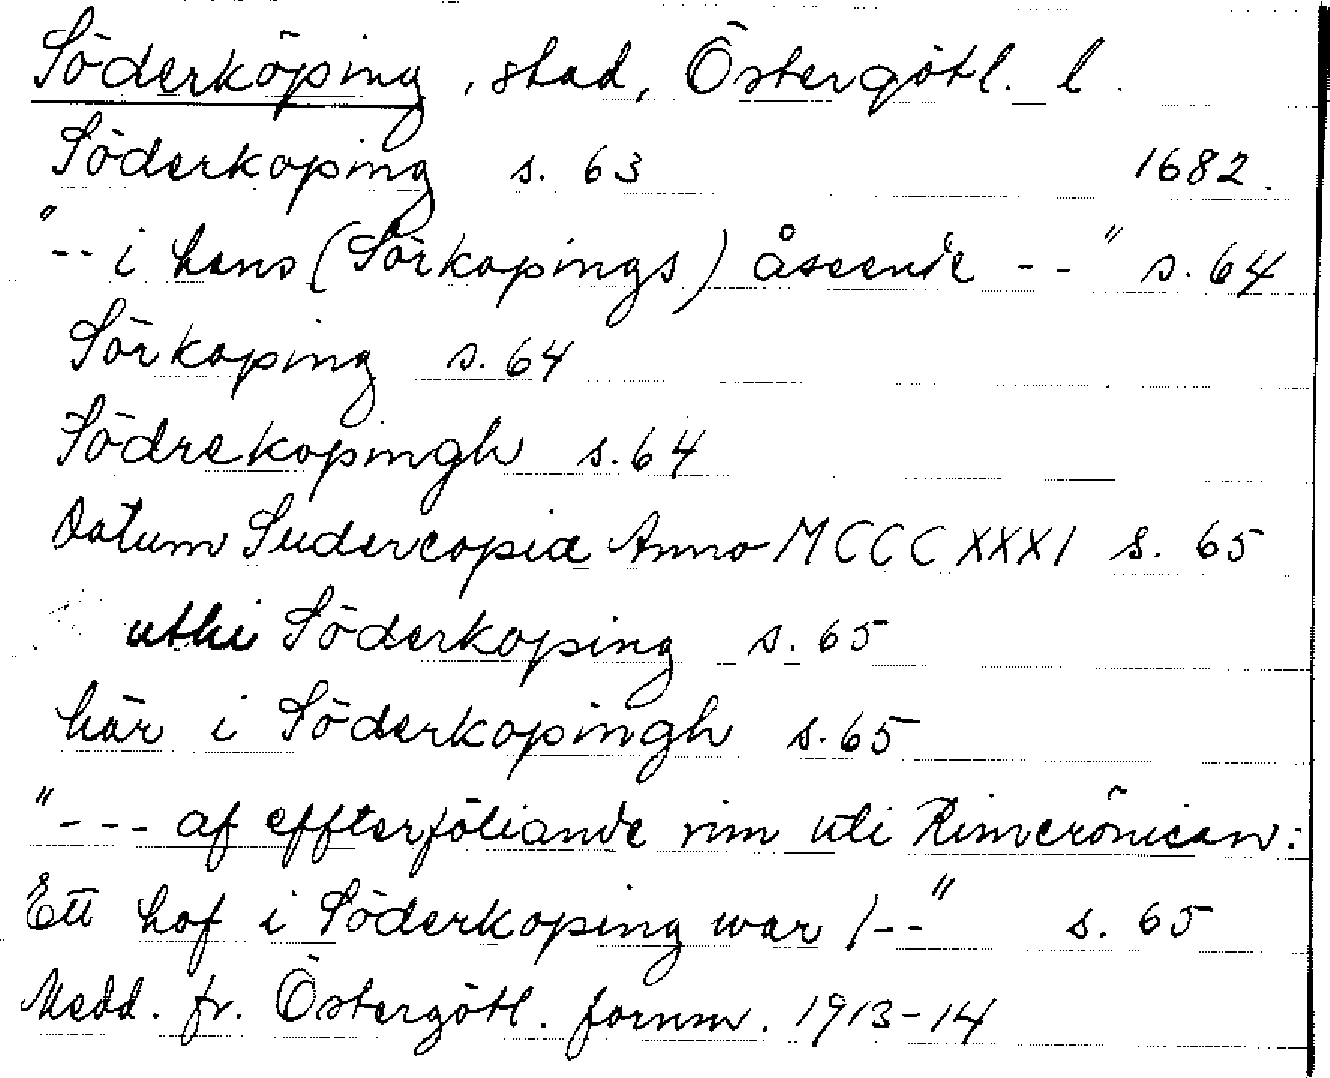 Söderköping, stad, Östergötl. l.
Söderkoping s. 63 1682.
"-- i hans (Sörkopings) åseende --" s. 64
Sörkoping s. 64
Södrekopingh s. 64
Datum Sudercopiæ Anno MCCCXXXI s. 65
uthi Söderkoping s. 65
här i Söderkopingh s. 65
"--- af effterföliande rim uti Rimcrönican:
Ett hof i Söderkoping war /--" s. 65
Medd. fr. Östergötl. fornm. 1913-14